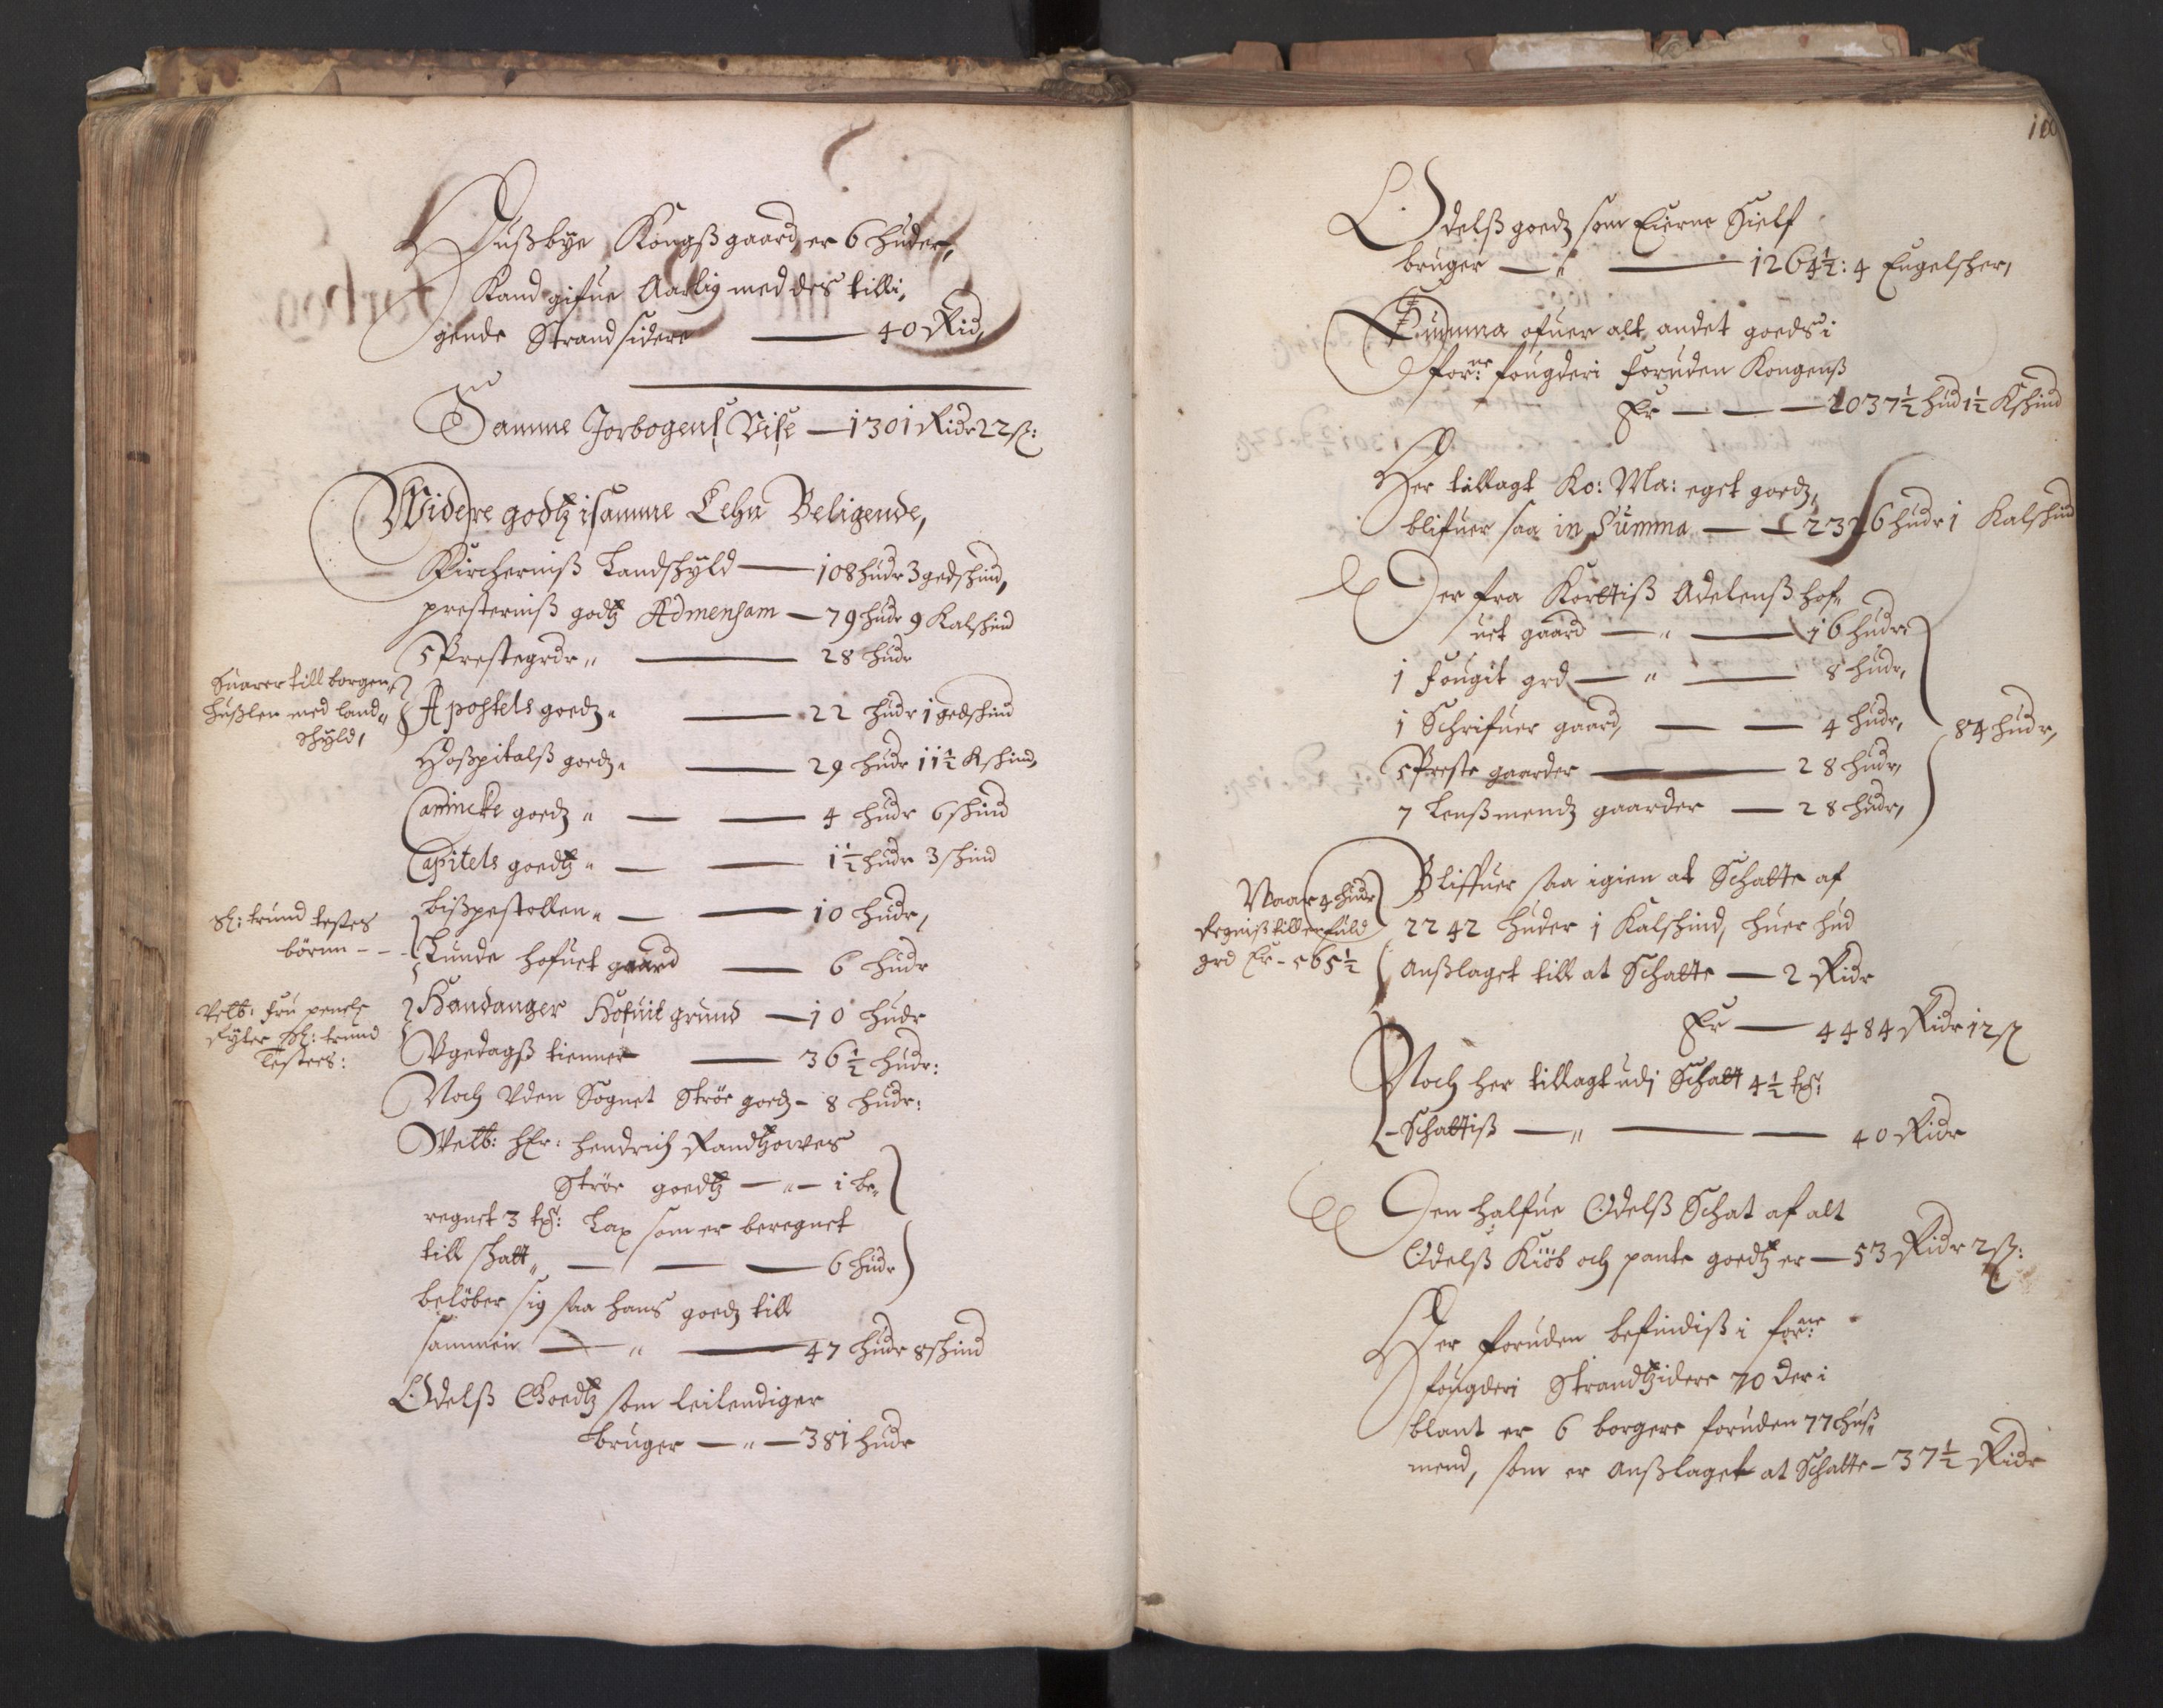 Hußbye Kongßgaard er 6 huder,
Kand gifue Aarlig med des tilli,
gende Strandsidere — 40 Rid,
Samme Jorbogens Vise — 1301 Ridr 22 ß:
Widere godtz i samme Lehn Beligende,
Kircherniß Landschyld — 108 hudr 3 gedschind,
presterniß godtz Admensam — 79 hudr 9 Kalschind
5 Prestegrdr „ — 28 hudr
Suarer till borgen
hußlen med land„
schyld,
Apostels goedz „ — 22 hudr 1 gedschind
Hoßpitalß goedz „ — 29 hudr 11½ Kschind,
Cannicke goedz „ — — 4 hudr 6 schind
Capitels goedtz „ — — 1½ hudr 3 schind
bißpestollen „ — — 10 hudr,
Sl: trund testes
börnn - -
Lunde hofuet gaard — 6 hudr
Velb: fru
Sl: trund
Testes:
Handanger Hofuit grund — 10 hudr
Vgedagß tienner — 36½ hudr:
Noch Vden Sognet Ströe goedz - 8 hudr:
Velb: Hr: Hendrich Randtzowes
Ströe goedtz — „ — i be„
regnet 3 Lax som er beregnet
till schatt „ — — — 6 hudr
belöber sig saa hans goedz till
sammen — „ — 47 hudr 8 schind
Odelß Goedtz som leilendiger
bruger — „ — 381 hudr
100
Odelß goedz som Eierne Sielf
bruger — „ — 1264½: 4 Engelscher,
Summa ofuer alt andet goeds i
forne: fougderi foruden Kongenß
Er — — — 2037½ hud 1½ Kschind
Her tillagt Ko: Ma: eget goedz,
blifuer saa in Summa — — 2326 hudr 1 Kalschind
Der fra Kortiß Adelenß hof„
uet gaard — „ — 16 hudr
1 fougit grd — „ — 8 hudr,
1 Schrifuer gaard, — — 4 hudr, 84 hudr,
5 Preste gaarder — 28 hudr,
7 Lenßmendz gaarder — 28 hudr,
Naar 4 hudr
Regniß till en fuld
grd Er - 565½
Bliffuer saa igien at Schatte af
2242 huder 1 Kalschind, huer hud
Anßlaget till at Schatte — 2 Ridr
Er — 4484 Ridr 12 ß
Noch her tillagt udj Schatt 4½
Schattiß — „ — — 40 Ridr
Den halfue Odelß Schat af alt
Odelß Kiöb och pante goedtz er — 53 Ridr 2 ß:
Her foruden befindiß i forne:
fougderi Strandtzidere 70 Der i
blant er 6 borgere foruden 77 huß„
mend, som er Anßlaget at Schatte - 37½ Ridr